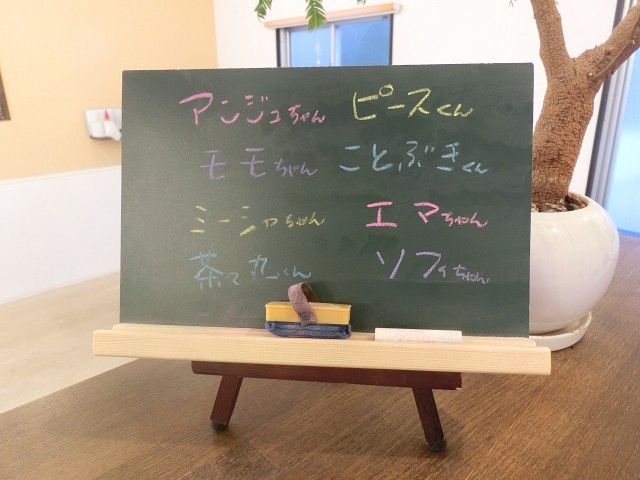 アンジュちゃん ピースくん
モモちゃん ことぶきくん
ミーシャちゃん エマちゃん
茶々丸くん ソフィちゃん